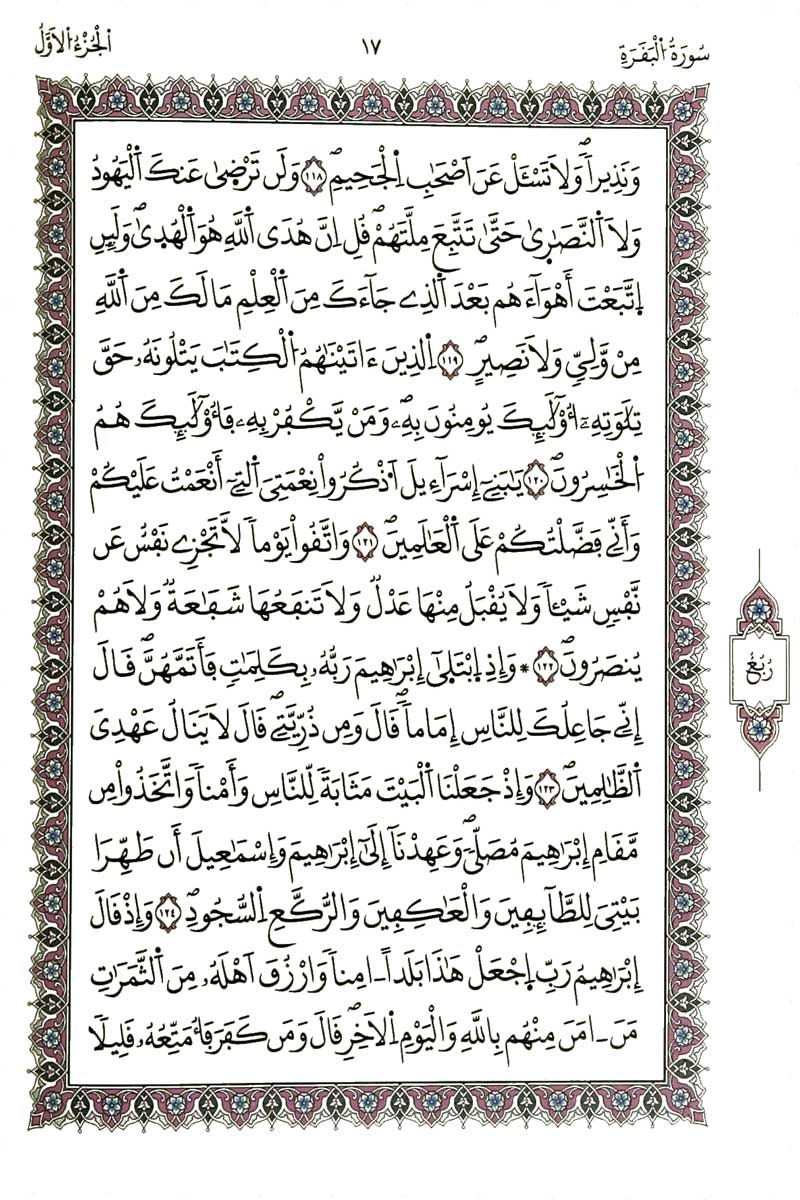 سُورَةُ الْبَقَرَةِ
١٧
الْجُزْءُ الْأَوَّلُ
وَنَذِيراٗۖ وَلَا تَسْـَٔلْ عَنَ اَصْحَٰبِ اِ۬لْجَحِيمِۖ ١١٨ وَلَن تَرْضَىٰ عَنكَ اَ۬لْيَهُودُ
وَلَا اَ۬لنَّصَٰرَىٰ حَتَّىٰ تَتَّبِعَ مِلَّتَهُمْۖ قُلِ اِنَّ هُدَى اَ۬للَّهِ هُوَ اَ۬لْهُدَىٰۖ وَلَئِنِ
اِ۪تَّبَعْتَ أَهْوَآءَهُم بَعْدَ اَ۬لذِے جَآءَكَ مِنَ اَ۬لْعِلْمِ مَا لَكَ مِنَ اَ۬للَّهِ
مِنْ وَّلِيّٖ وَلَا نَصِيرٍۖ ١١٩ اِ۬لذِينَ ءَاتَيْنَٰهُمُ اُ۬لْكِتَٰبَ يَتْلُونَهُۥ حَقَّ
تِلَٰوَتِهِۦٓ أُوْلَٰٓئِكَ يُومِنُونَ بِهِۦۖ وَمَنْ يَّكْفُرْ بِهِۦ فَأُوْلَٰٓئِكَ هُمُ
اُ۬لْخَٰسِرُونَۖ ١٢٠ يَٰبَنِےٓ إِسْرَآءِيلَ اَ۟ذْكُرُواْ نِعْمَتِيَ اَ۬لتِےٓ أَنْعَمْتُ عَلَيْكُمْ
وَأَنِّے فَضَّلْتُكُمْ عَلَى اَ۬لْعَٰلَمِينَۖ ١٢١ وَاتَّقُواْ يَوْماٗ لَّا تَجْزِے نَفْسٌ عَن
نَّفْسٖ شَيْـٔاٗ وَلَا يُقْبَلُ مِنْهَا عَدْلٞ وَلَا تَنفَعُهَا شَفَٰعَةٞ وَلَا هُمْ
يُنصَرُونَۖ ١٢٢ ۞ وَإِذِ اِ۪بْتَلَىٰٓ إِبْرَٰهِيمَ رَبُّهُۥ بِكَلِمَٰتٖ فَأَتَمَّهُنَّۖ قَالَ
إِنِّے جَاعِلُكَ لِلنَّاسِ إِمَاماٗۖ قَالَ وَمِن ذُرِّيَّتِےۖ قَالَ لَا يَنَالُ عَهْدِيَ
اَ۬لظَّٰلِمِينَۖ ١٢٣ وَإِذْ جَعَلْنَا اَ۬لْبَيْتَ مَثَابَةٗ لِّلنَّاسِ وَأَمْناٗ وَاتَّخَذُواْ مِن
مَّقَامِ إِبْرَٰهِيمَ مُصَلّىٗۖ وَعَهِدْنَآ إِلَىٰٓ إِبْرَٰهِيمَ وَإِسْمَٰعِيلَ أَن طَهِّرَا
بَيْتِيَ لِلطَّآئِفِينَ وَالْعَٰكِفِينَ وَالرُّكَّعِ اِ۬لسُّجُودِۖ ١٢٤ وَإِذْ قَالَ
إِبْرَٰهِيمُ رَبِّ اِ۪جْعَلْ هَٰذَا بَلَداً اٰمِناٗ وَارْزُقَ اَهْلَهُۥ مِنَ اَ۬لثَّمَرَٰتِ
مَنَ اٰمَنَ مِنْهُم بِاللَّهِ وَالْيَوْمِ اِ۬لَاخِرِۖ قَالَ وَمَن كَفَرَ فَأُمَتِّعُهُۥ قَلِيلاٗ
رُبُعٌ